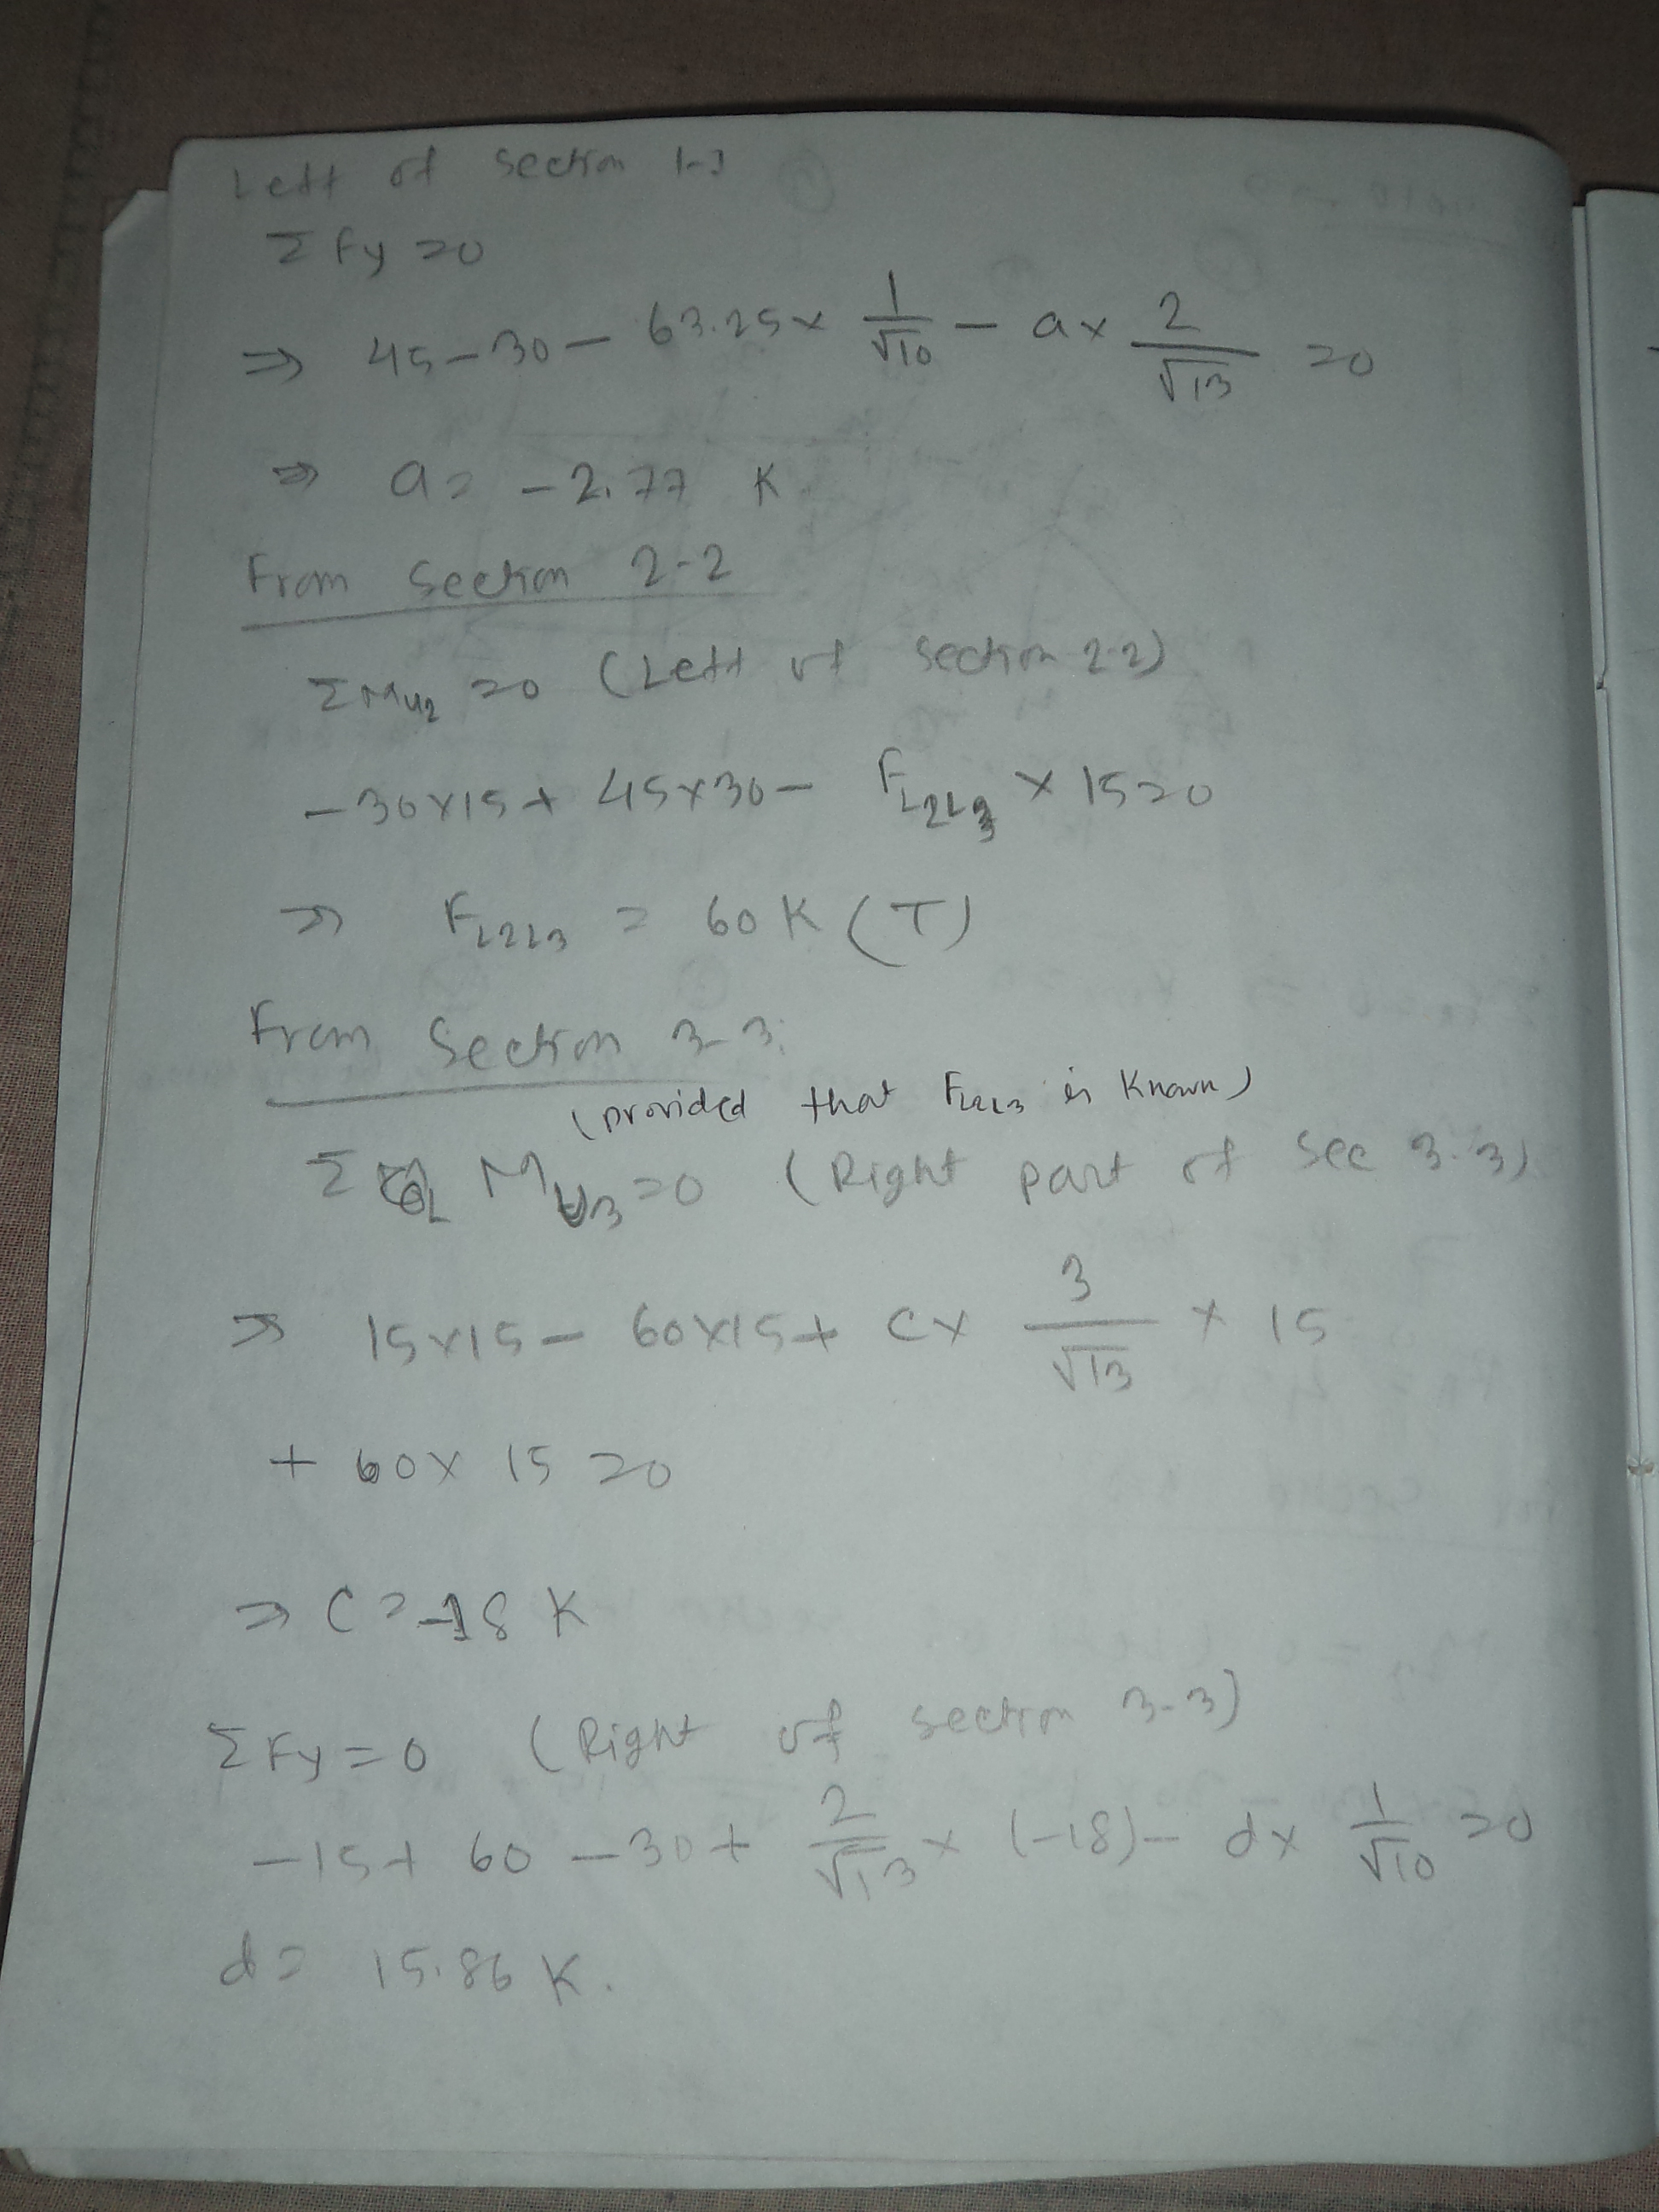 Left of section 1-1
Σ Fy = 0
⇒ 45 - 30 - 63.25 × 1/√10 - a × 2/√13 = 0
⇒ a = -2.77 K
From Section 2-2
ΣM_U2 = 0 (Left of section 2-2)
-30×15 + 45×30 - F_L2L3 × 15 = 0
⇒ F_L2L3 = 60 K (T)
From Section 3-3:
(provided that F_L2L3 is known)
Σ M_U3 = 0 (Right part of sec 3-3)
⇒ 15×15 - 60×15 + C × 3/√13 × 15
+ 60 × 15 = 0
⇒ C = -18 K
ΣFy = 0 (Right of section 3-3)
-15 + 60 - 30 + 2/√13 × (-18) - d × 1/√10 = 0
d = 15.86 K.